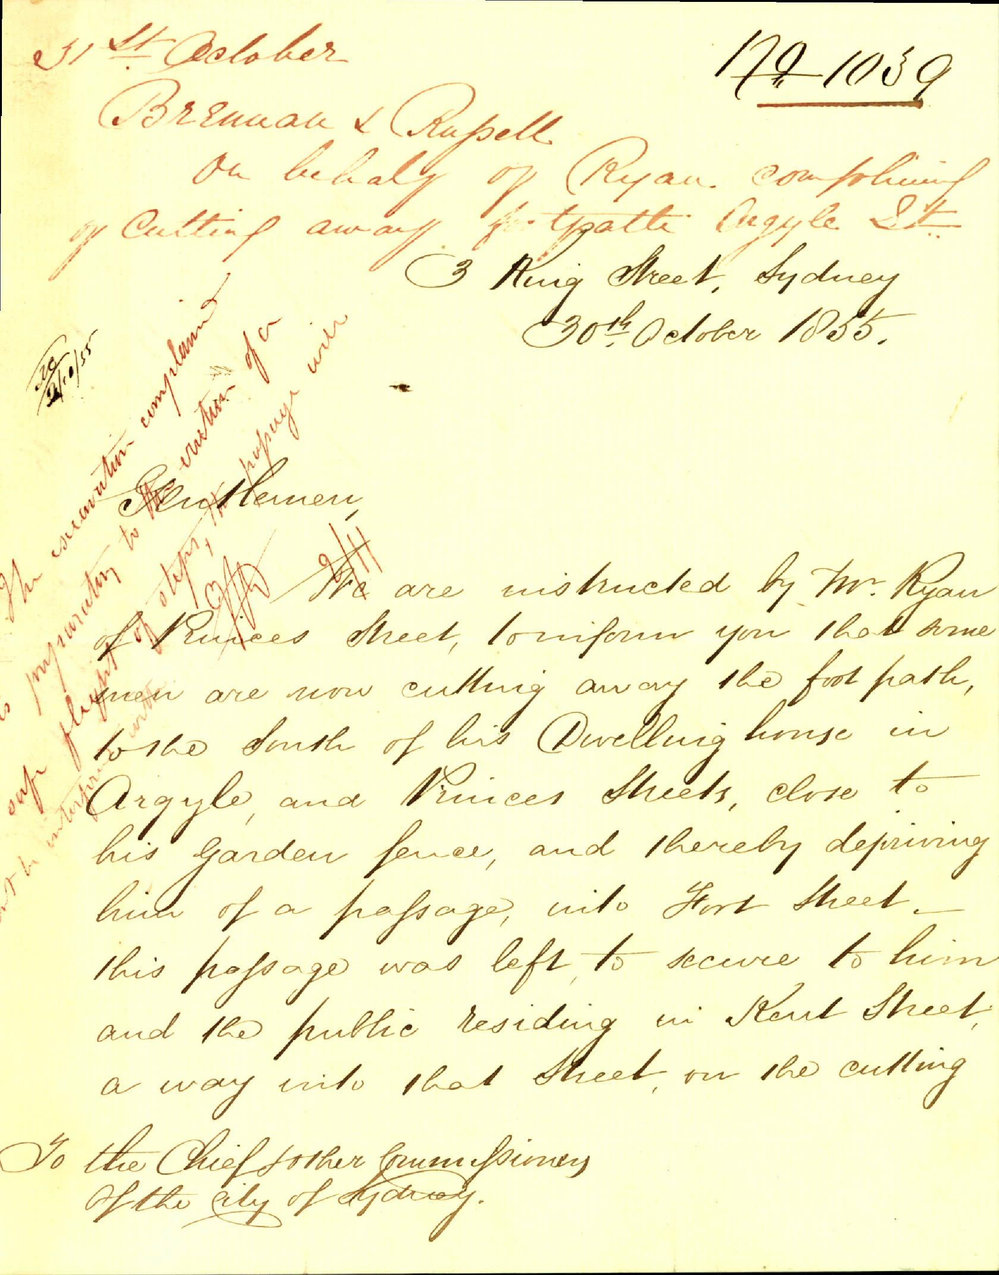 31st October
No 1039
Brennan & Russell
On behalf of Ryan complaining
of Cutting away footpath Argyle St
3 King Street, Sydney
30th October 1855.
The excavation complained
is preparatory to the erection of a
safe flight of steps, the passage will
not be interfered with
2/11
Gentlemen,
We are instructed by Mr. Ryan
of Princes Street, to inform you that some
men are now cutting away the foot path,
to the South of his Dwelling house in
Argyle, and Princes Streets, close to
his Garden fence, and thereby depriving
him of a passage, into Fort Street _
this passage was left, to secure to him
and the public residing in Kent Street,
a way into that Street, on the cutting
To the Chief & other Commissioners
of the City of Sydney.